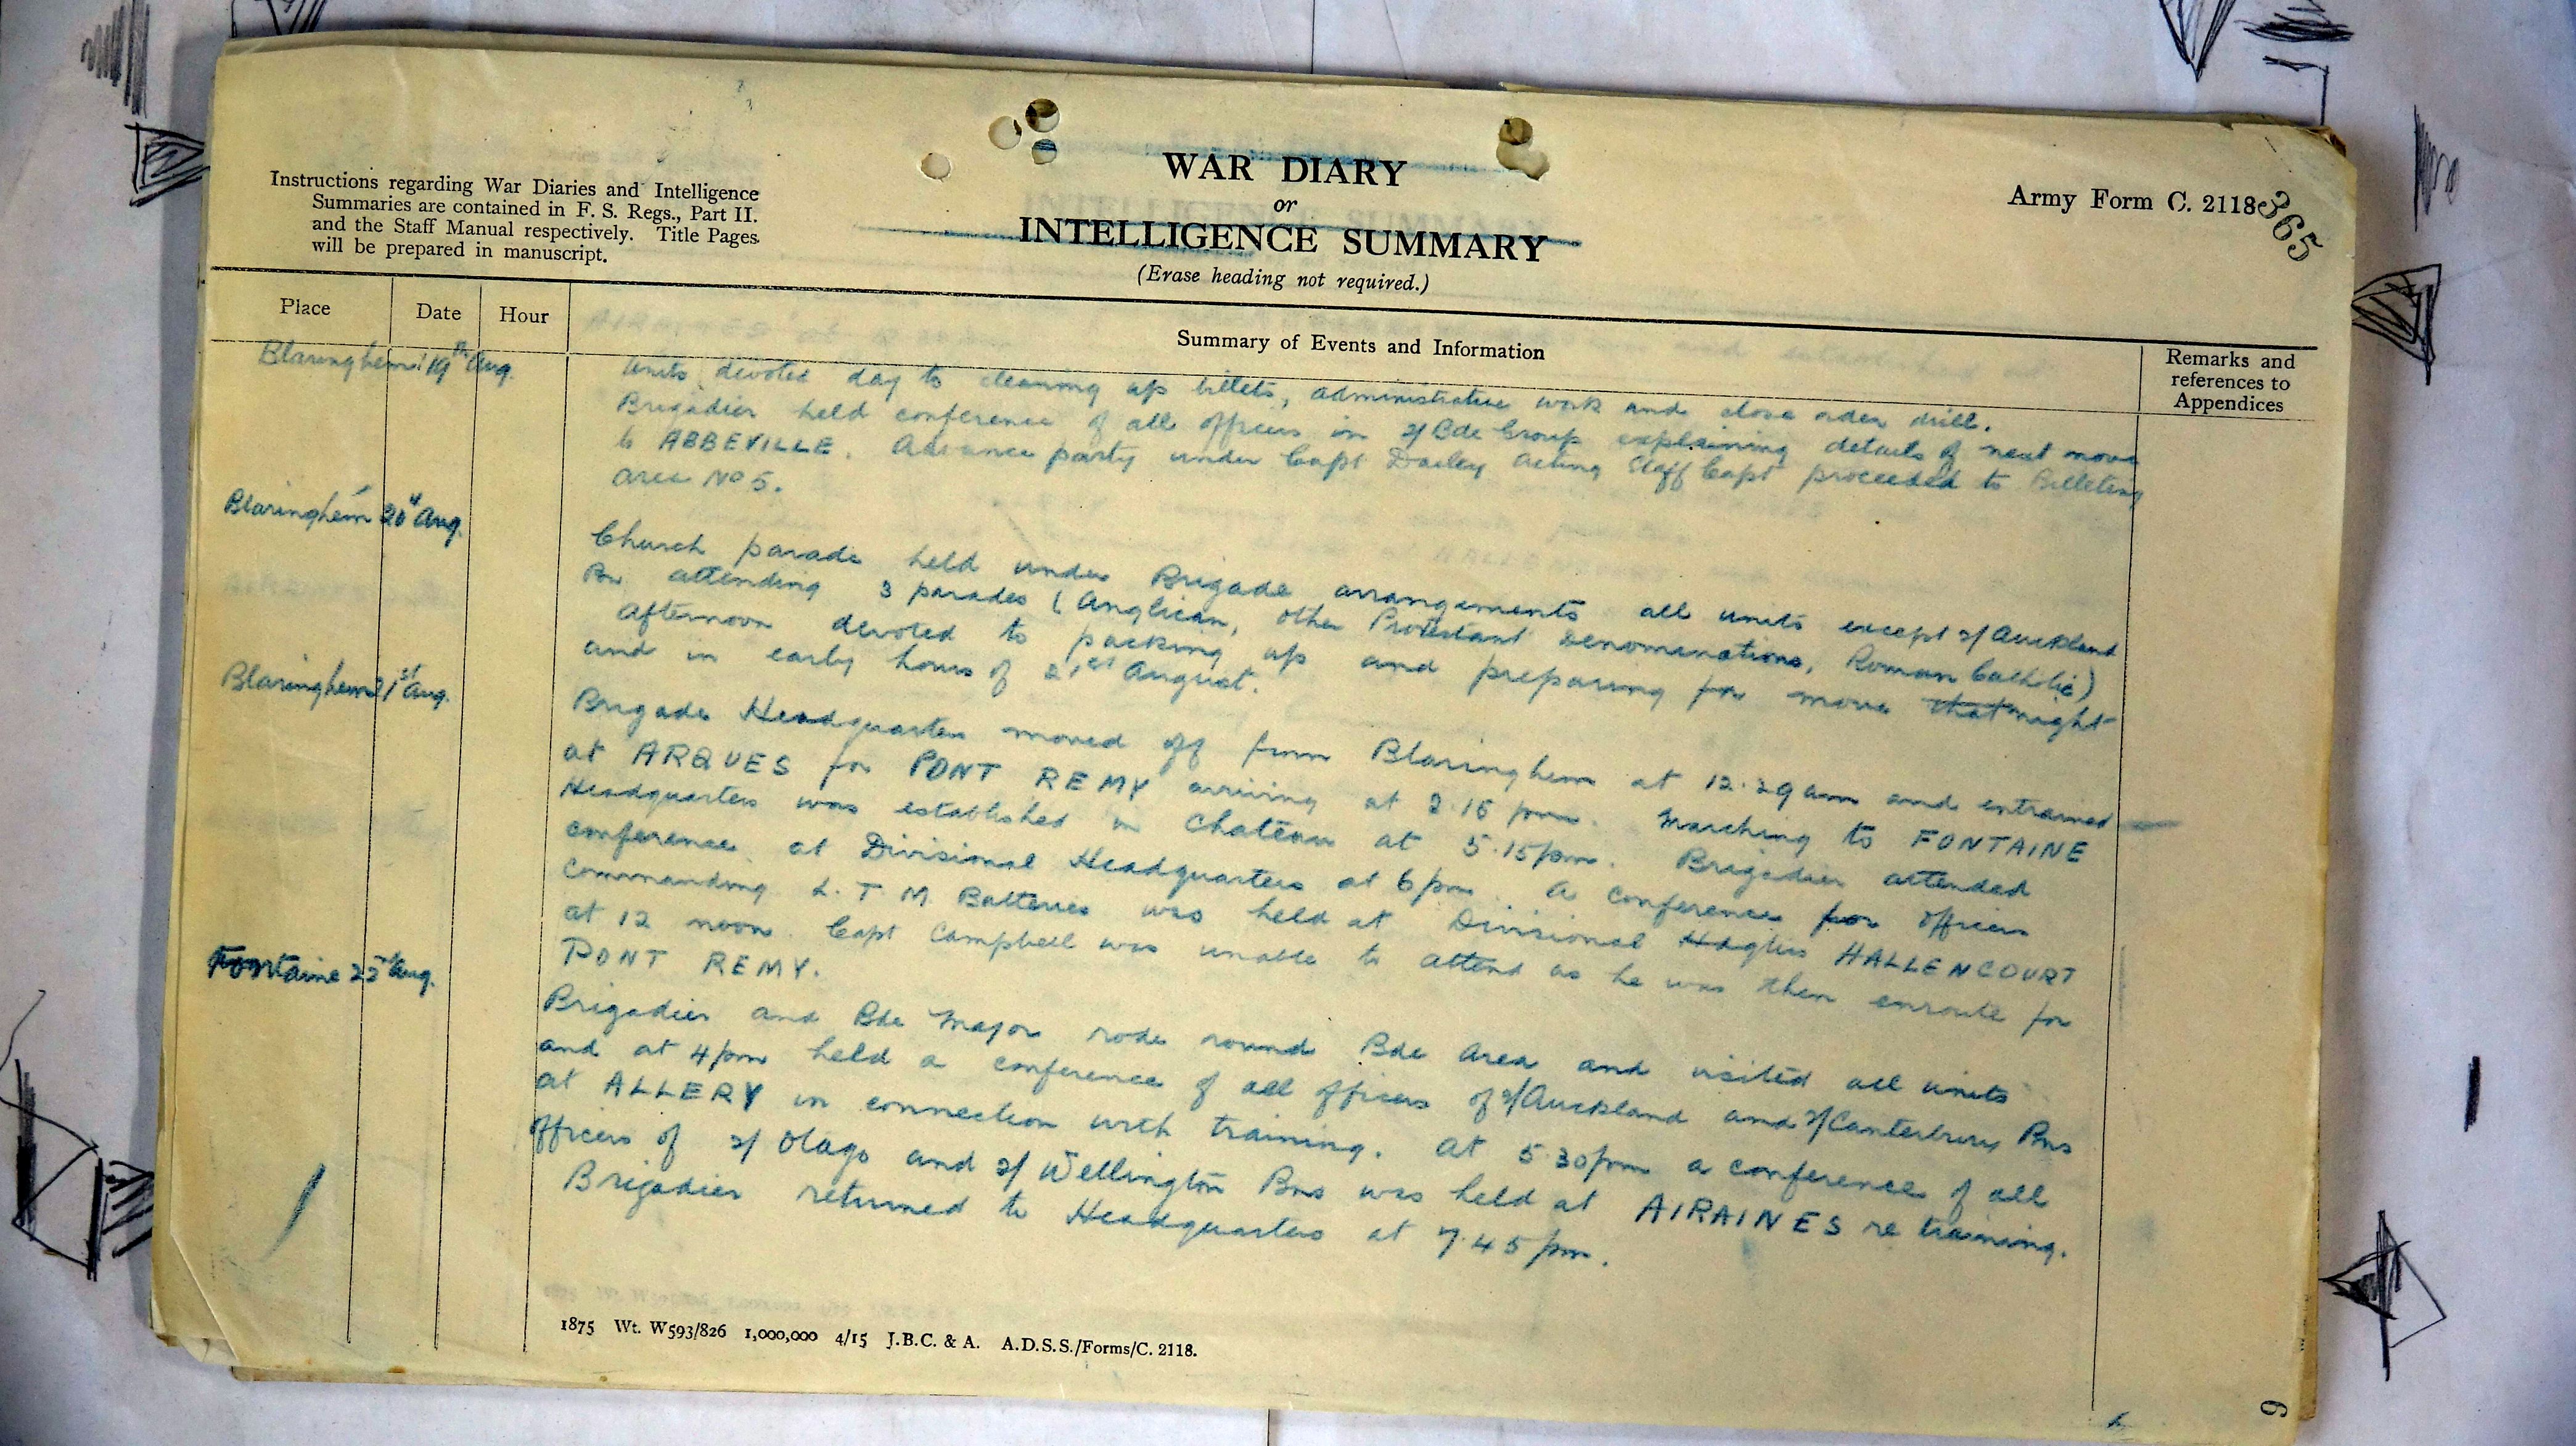 Instructions regarding War Diaries and Intelligence
Summaries are contained in F. S. Regs., Part II.
and the Staff Manual respectively. Title Pages
will be prepared in manuscript.
WAR DIARY
or
INTELLIGENCE SUMMARY
(Erase heading not required.)
Army Form C. 2118
365
Place
Date
Hour
Summary of Events and Information
Remarks and
references to
Appendices
Blaringhem 19th Aug.
Units devoted day to cleaning up billets, administrative work and close order drill.
Brigadier held conference of all officers in 2/Bde Group explaining details of next move
to ABBEVILLE. Advance party under Capt Dailey Acting Staff Capt proceeded to Billeting
area No 5.
Blaringhem 20th Aug.
Church parade held under Brigade arrangements all units except 2/Auckland
Bn attending 3 parades (Anglican, other Protestant Denominations, Roman Catholic)
Afternoon devoted to packing up and preparing for move that night
and in early hours of 21st August.
Blaringhem 21st Aug.
Brigade Headquarters moved off from Blaringhem at 12.29am and entrained
at ARQUES for PONT REMY arriving at 2.15 pm. Marching to FONTAINE
Headquarters was established in Chateau at 5.15pm. Brigadier attended
conference at Divisional Headquarters at 6pm. A conference for officers
commanding L. T. M. Batteries was held at Divisional Hdqtrs HALLENCOURT
at 12 noon. Capt Campbell was unable to attend as he was then enroute for
PONT REMY.
Fontaine 22nd Aug.
Brigadier and Bde Major rode round Bde Area and visited all units
and at 4pm held a conference of all officers of 2/Auckland and 2/Canterbury Bns
at ALLERY in connection with training. At 5.30pm a conference of all
officers of 2/ Otago and 2/ Wellington Bns was held at AIRAINES re training.
Brigadier returned to Headquarters at 7.45 pm.
1875 Wt. W593/826 1,000,000 4/15 J.B.C. & A. A.D.S.S./Forms/C. 2118.
9